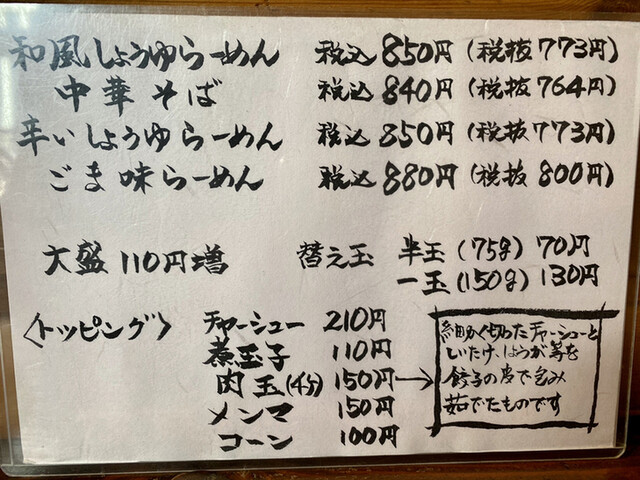 和風しょうゆらーめん 税込850円(税抜773円)
中華そば 税込840円(税抜764円)
辛いしょうゆらーめん 税込850円(税抜773円)
ごま味らーめん 税込880円(税抜800円)
大盛110円増 替え玉 半玉(75g)70円
一玉(150g)130円
〈トッピング〉 チャーシュー 210円
煮玉子 110円
肉玉(4ケ) 150円→
メンマ 150円
コーン 100円
細かく切ったチャーシューと
しいたけ、しょうが等を
餃子の皮で包み
茹でたものです